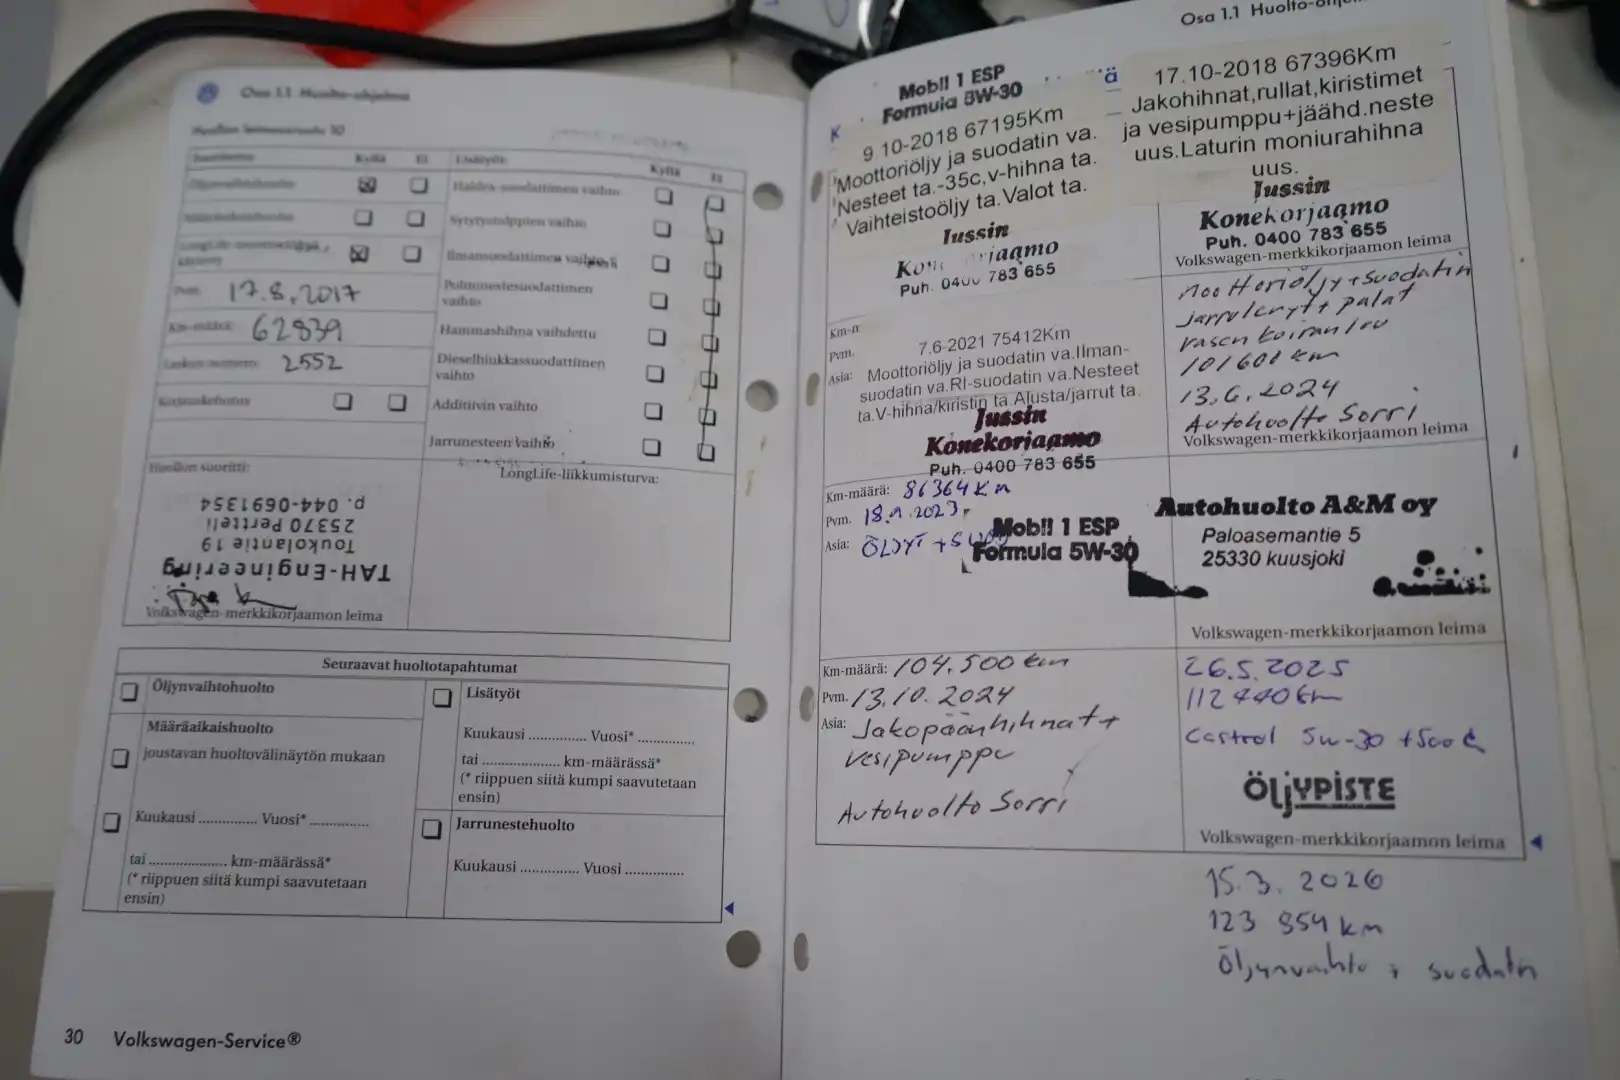 Osa 1.1 Huolto-ohjelma
Kyllä Ei Lisätyöt: Kyllä Ei
Öljynvaihtohuolto
Haldex-suodattimen vaihto
Sytytystulppien vaihto
Ilmansuodattimen vaihto
Polttonestesuodattimen
vaihto
Hammashihna vaihdettu
Dieselhiukkassuodattimen
vaihto
Additiivin vaihto
Jarrunesteen vaihto
Pvm: 17.8.2017
Km-määrä: 62839
Laskun numero: 2552
Korjauskehotus
Huollon suoritti:
LongLife-liikkumisturva:
p. 044-0691354
25370 Pertteli
Toukolantie 19
TAH-Engineering
Volkswagen-merkkikorjaamon leima
Seuraavat huoltotapahtumat
Öljynvaihtohuolto
Määräaikaishuolto
joustavan huoltovälinäytön mukaan
Kuukausi .............. Vuosi* ..............
tai .................... km-määrässä*
(* riippuen siitä kumpi saavutetaan
ensin)
Lisätyöt
Kuukausi .............. Vuosi* ..............
tai .................... km-määrässä*
(* riippuen siitä kumpi saavutetaan
ensin)
Jarrunestehuolto
Kuukausi .............. Vuosi ..............
30 Volkswagen-Service®
Osa 1.1 Huolto-ohjelma
Mobil 1 ESP
Formula 5W-30
9 10-2018 67195Km
Moottoriöljy ja suodatin va.
Nesteet ta.-35c,v-hihna ta.
Vaihteistoöljy ta.Valot ta.
Jussin
Konekorjaamo
Puh. 0400 783 655
17.10-2018 67396Km
Jakohihnat,rullat,kiristimet
ja vesipumppu+jäähd.neste
uus.Laturin moniurahihna
uus.
Jussin
Konekorjaamo
Puh. 0400 783 655
Volkswagen-merkkikorjaamon leima
Pvm.
Asia:
7.6-2021 75412Km
Moottoriöljy ja suodatin va.Ilman-
suodatin va.RI-suodatin va.Nesteet
ta.V-hihna/kiristin ta.Alusta/jarrut ta.
Jussin
Konekorjaamo
Puh. 0400 783 655
Moottoriöljy+suodatin
jarrulevyt+palat
vasen koiranluu
101600 km
13.6.2024
Autohuolto Sorri
Volkswagen-merkkikorjaamon leima
Km-määrä: 86364 Km
Pvm. 18.9.2023
Asia: ÖLJYT +SUOD
Mobil 1 ESP
Formula 5W-30
Autohuolto A&M oy
Paloasemantie 5
25330 kuusjoki
Volkswagen-merkkikorjaamon leima
Km-määrä: 104.500 km
Pvm. 13.10.2024
Asia: Jakopäänhihnat+
vesipumppu
Autohuolto Sorri
26.5.2025
112440 km
Castrol 5w-30 +Suod
ÖLJYPISTE
Volkswagen-merkkikorjaamon leima
15.3.2026
123 854 km
Öljynvaihto + suodatin